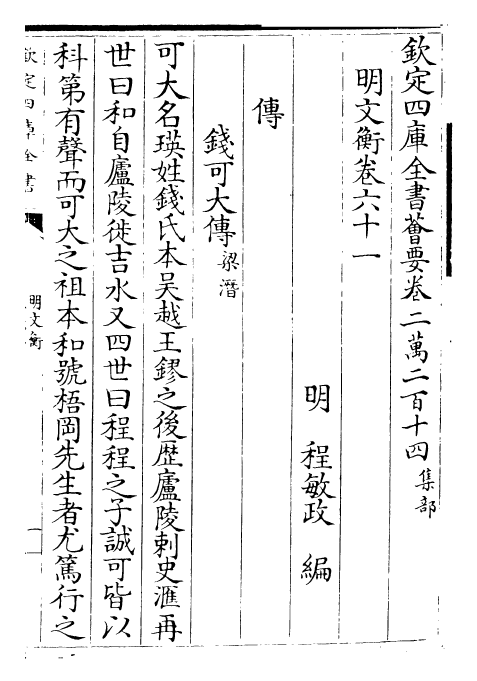 欽定四庫全書薈要卷二萬二百十四 集部
明文衡卷六十一
明 程敏政 編
傳
錢可大傳 梁潛
可大名瑛姓錢氏本吳越王鏐之後歴廬陵刺史滙再
世曰和自廬陵徙吉水又四世曰程程之子誠可皆以
科第有聲而可大之祖本和號梧岡先生者尤篤行之
欽定四庫全書
明文衡
一